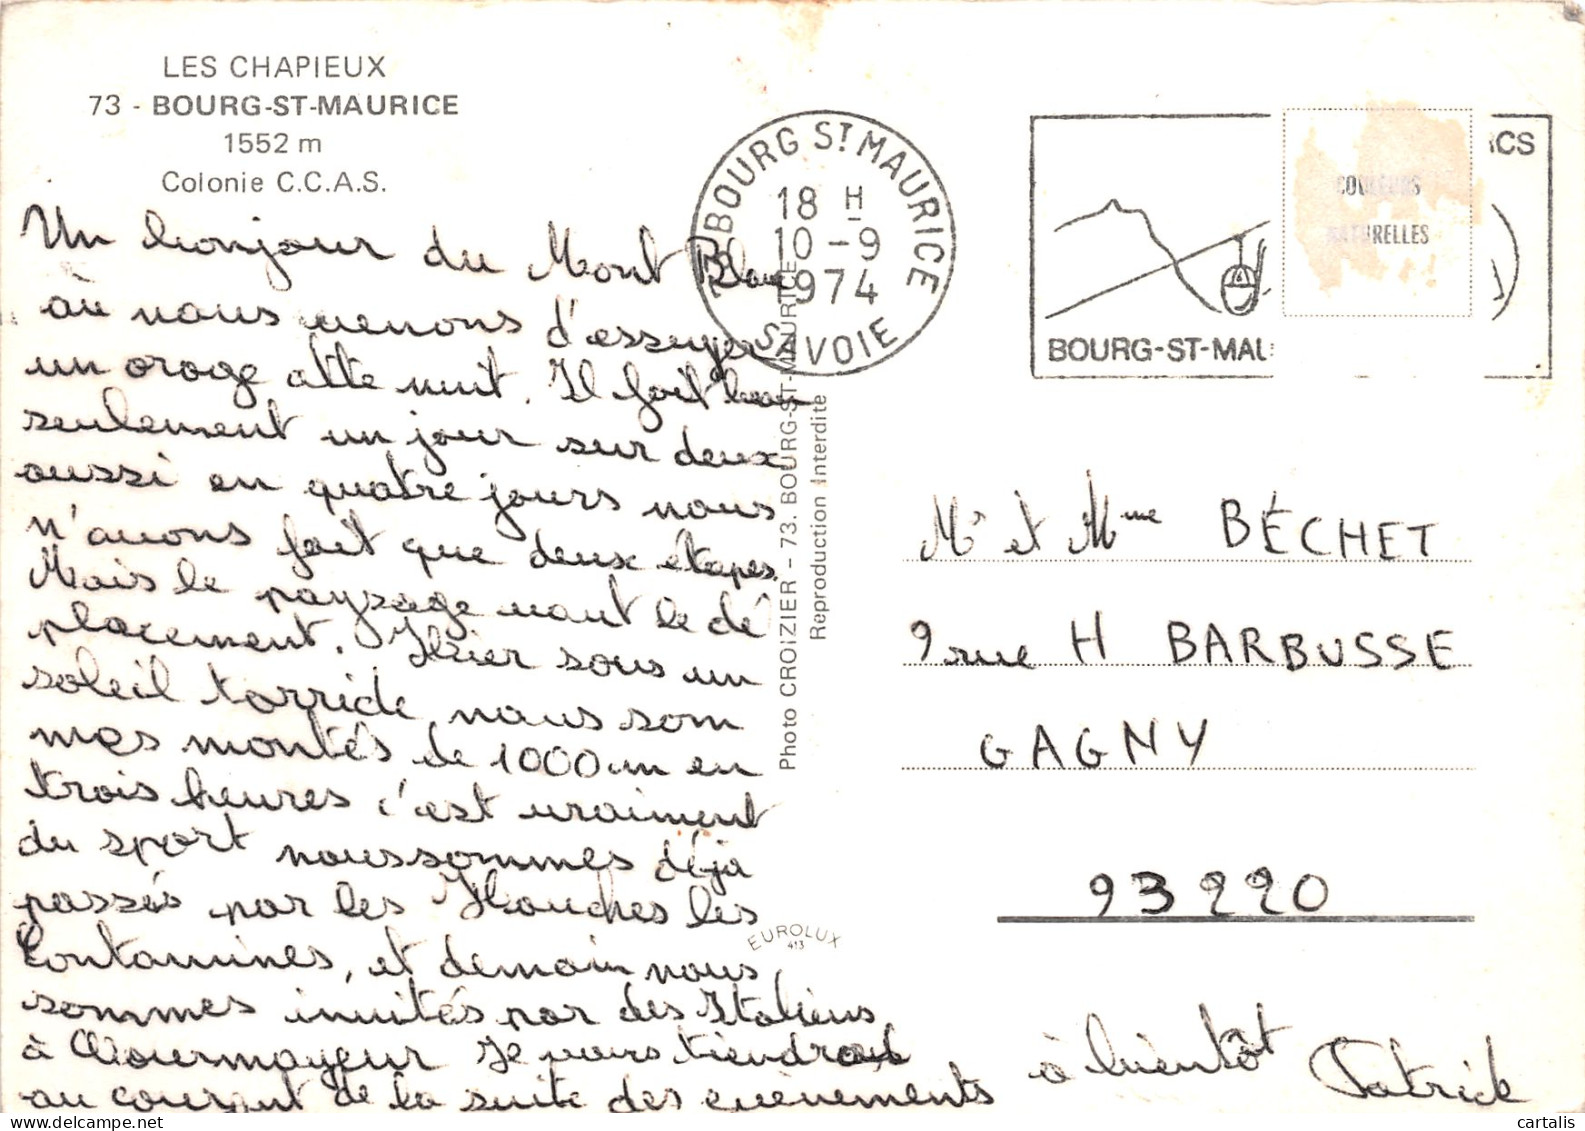 LES CHAPIEUX
73 - BOURG-ST-MAURICE
1552 m
Colonie C.C.A.S.
Un bonjour du Mont Blanc
où nous venons d'essuyer
un orage cette nuit. Il fait beau
seulement un jour sur deux
aussi en quatre jours nous
n'avons fait que deux étapes.
Mais le paysage vaut le dé
placement. Hier sous un
soleil torride nous som
mes montés de 1000 m en
trois heures c'est vraiment
du sport nous sommes déja
passés par les Houches les
Contamines, et demain nous
sommes invités par des Italiens
à Courmayeur Je vous tiendrai
au courant de la suite des évènements
à bientôt
Patrick
BOURG ST MAURICE
18 H
10 - 9
1974
SAVOIE
CS
BOURG-ST-MAU
COULEURS
NATURELLES
Photo CROIZIER - 73. BOURG-ST-MAURICE
Reproduction Interdite
EUROLUX
413
Mr et Mme BÉCHET
9 rue H BARBUSSE
GAGNY
93220
cartalis